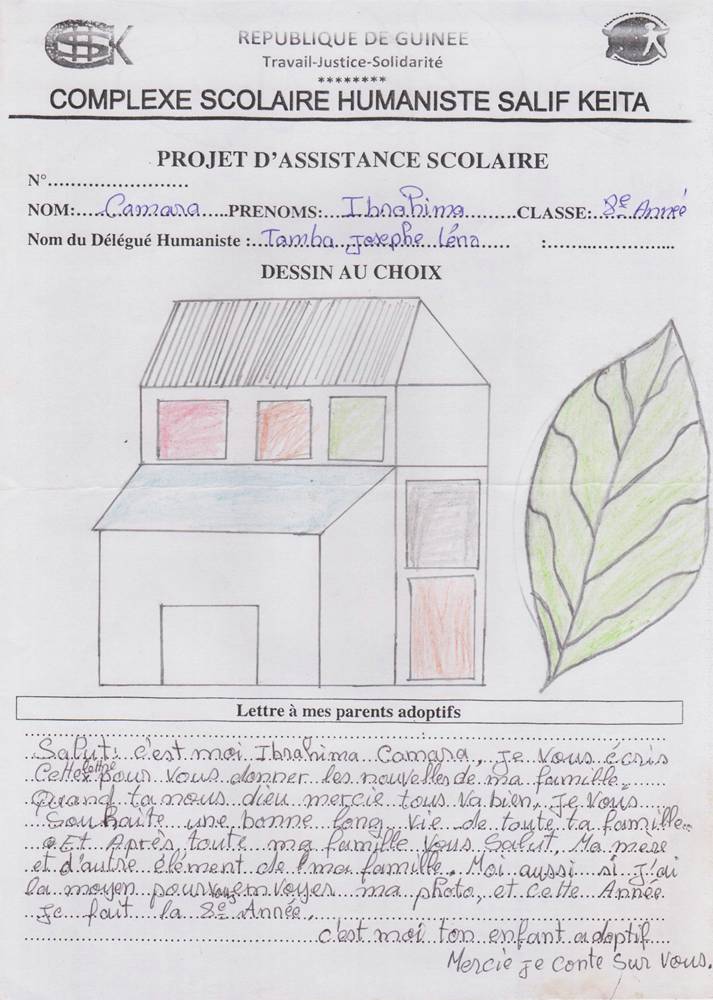 GSHSK
REPUBLIQUE DE GUINEE
Travail-Justice-Solidarité
********
COMPLEXE SCOLAIRE HUMANISTE SALIF KEITA
PROJET D'ASSISTANCE SCOLAIRE
N°........................
NOM:....Camara.....PRENOMS:...Ibrahima.........CLASSE:...8e Année
Nom du Délégué Humaniste :..Tamba Josephe Léno..... :......................
DESSIN AU CHOIX
Lettre à mes parents adoptifs
Salut! c'est moi Ibrahima Camara, je vous écris
Cette lettre pour vous donner les nouvelles de ma famille
Quand ta nous dieu mercie tous va bien, Je vous
Souhaite une bonne long vie de toute ta famille.
Et Après toute ma famille vous Salut, Ma mere
et d'autre élément de ma famille. Moi aussi si j'ai
la moyen pour vous emvoyer ma photo, et Cette Année
Je fait la 8e Année.
c'est moi ton enfant adoptif
Mercie je conte Sur vous.